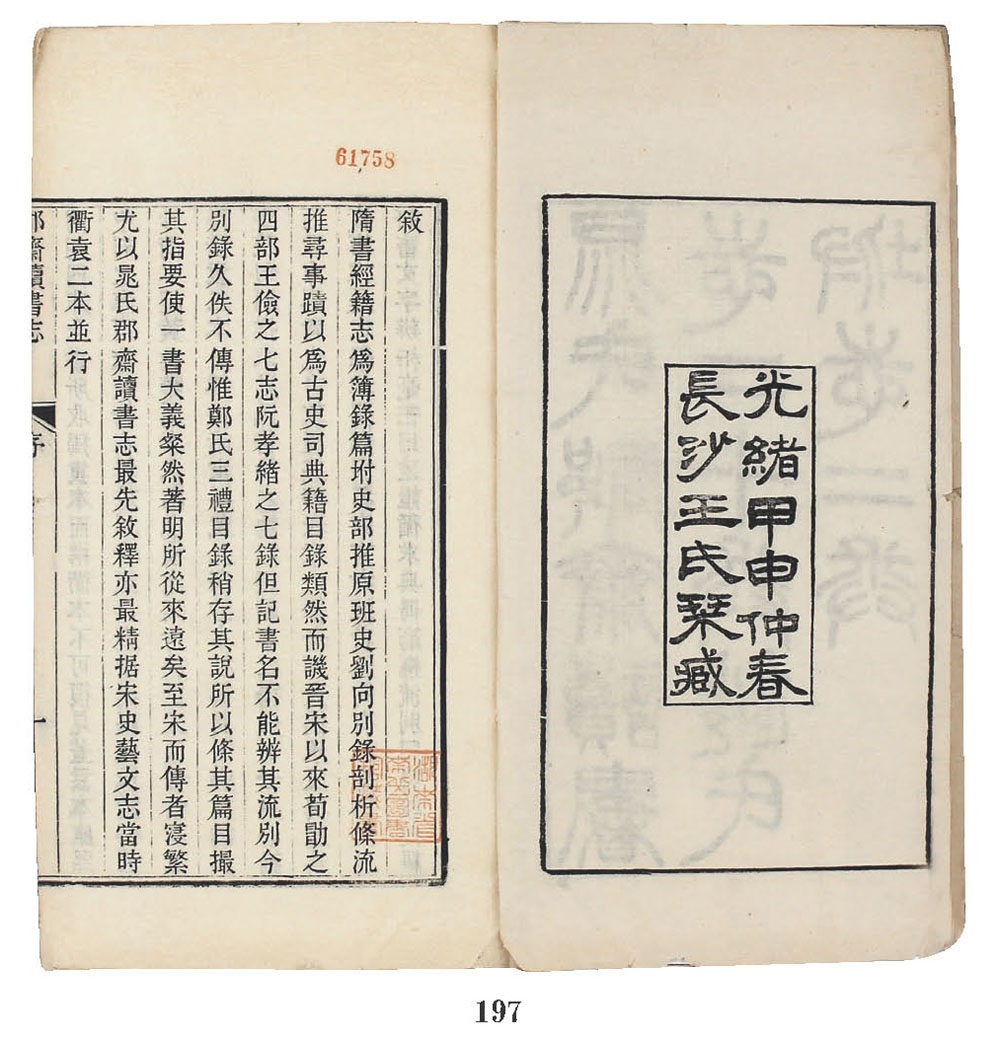 光緒甲申仲春
長沙王氏栞臧
61758
敘
隋書經籍志爲簿錄篇坿史部推原班史劉向別錄剖析條流
推尋事蹟以爲古史司典籍目錄類然而譏晉宋以來荀勖之
四部王儉之七志阮孝緒之七錄但記書名不能辨其流別今
別錄久佚不傳惟鄭氏三禮目錄稍存其說所以條其篇目撮
其指要使一書大義粲然著明所從來遠矣至宋而傳者寖繁
尤以晁氏郡齋讀書志最先敘釋亦最精据宋史藝文志當時
衢袁二本並行
郡齋讀書志
序
一
197